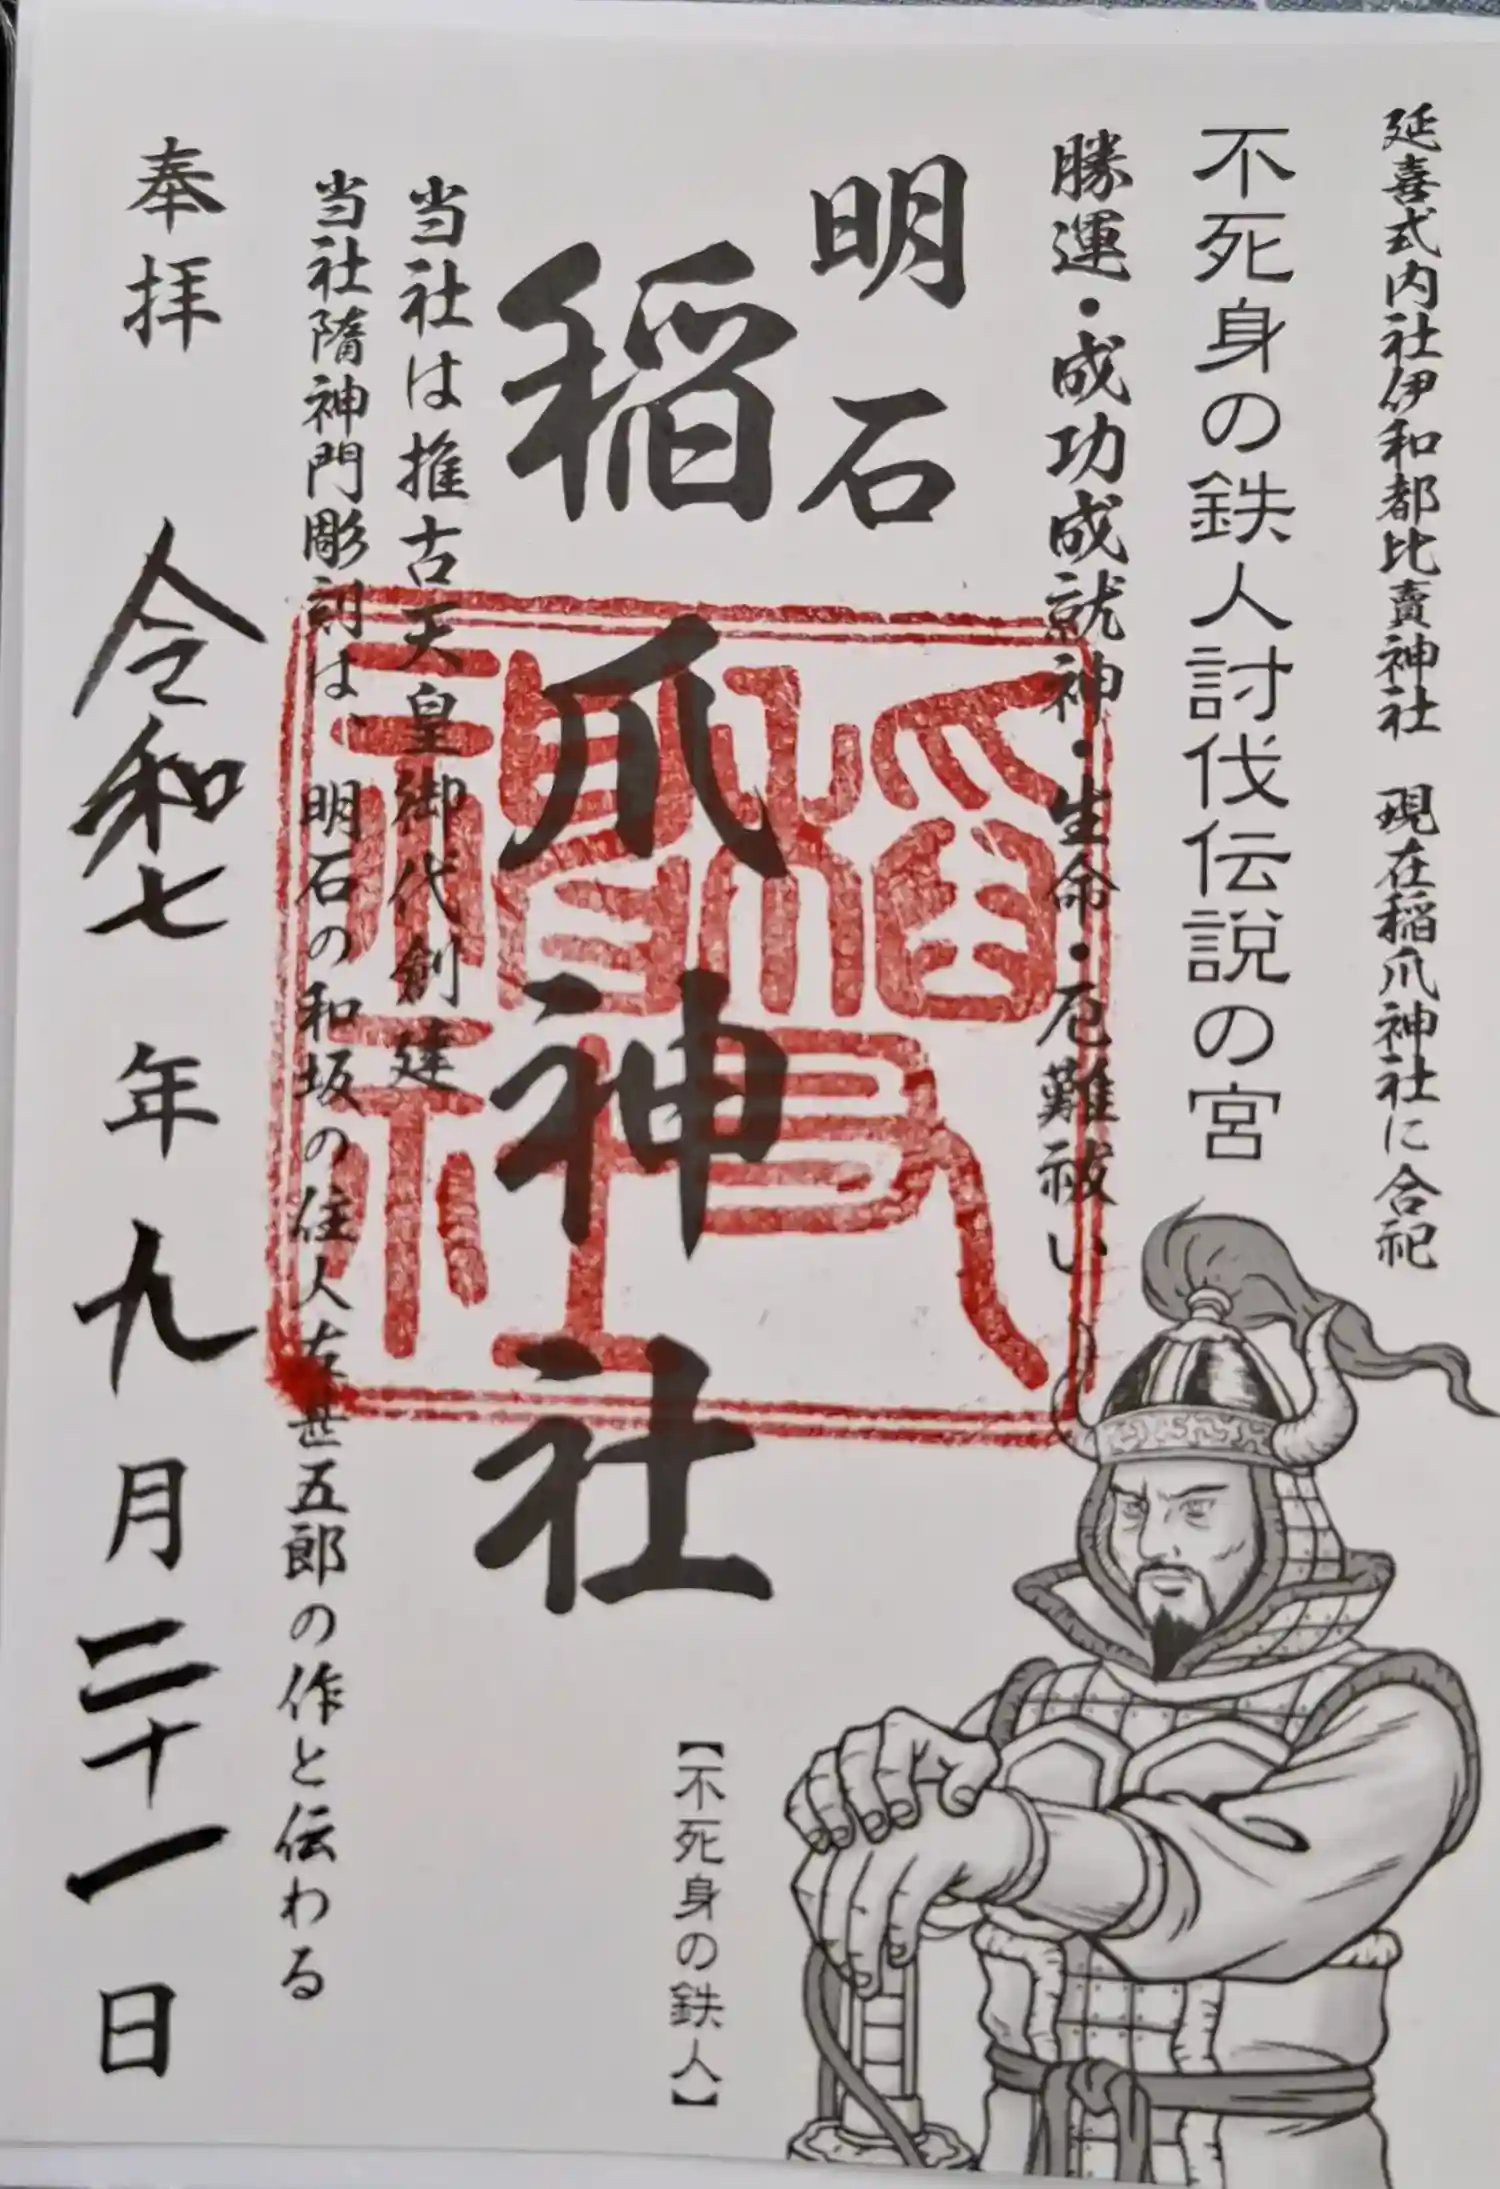 延喜式内社伊和都比賣神社 現在稲爪神社に合祀
不死身の鉄人討伐伝説の宮
勝運・成功成就神・生命・厄難祓い
明石
稲爪神社
当社は推古天皇御代創建
当社隋神門彫刻は、明石の和坂の住人左甚五郎の作と伝わる
奉拝 令和七年九月二十一日
【不死身の鉄人】
稲爪神社